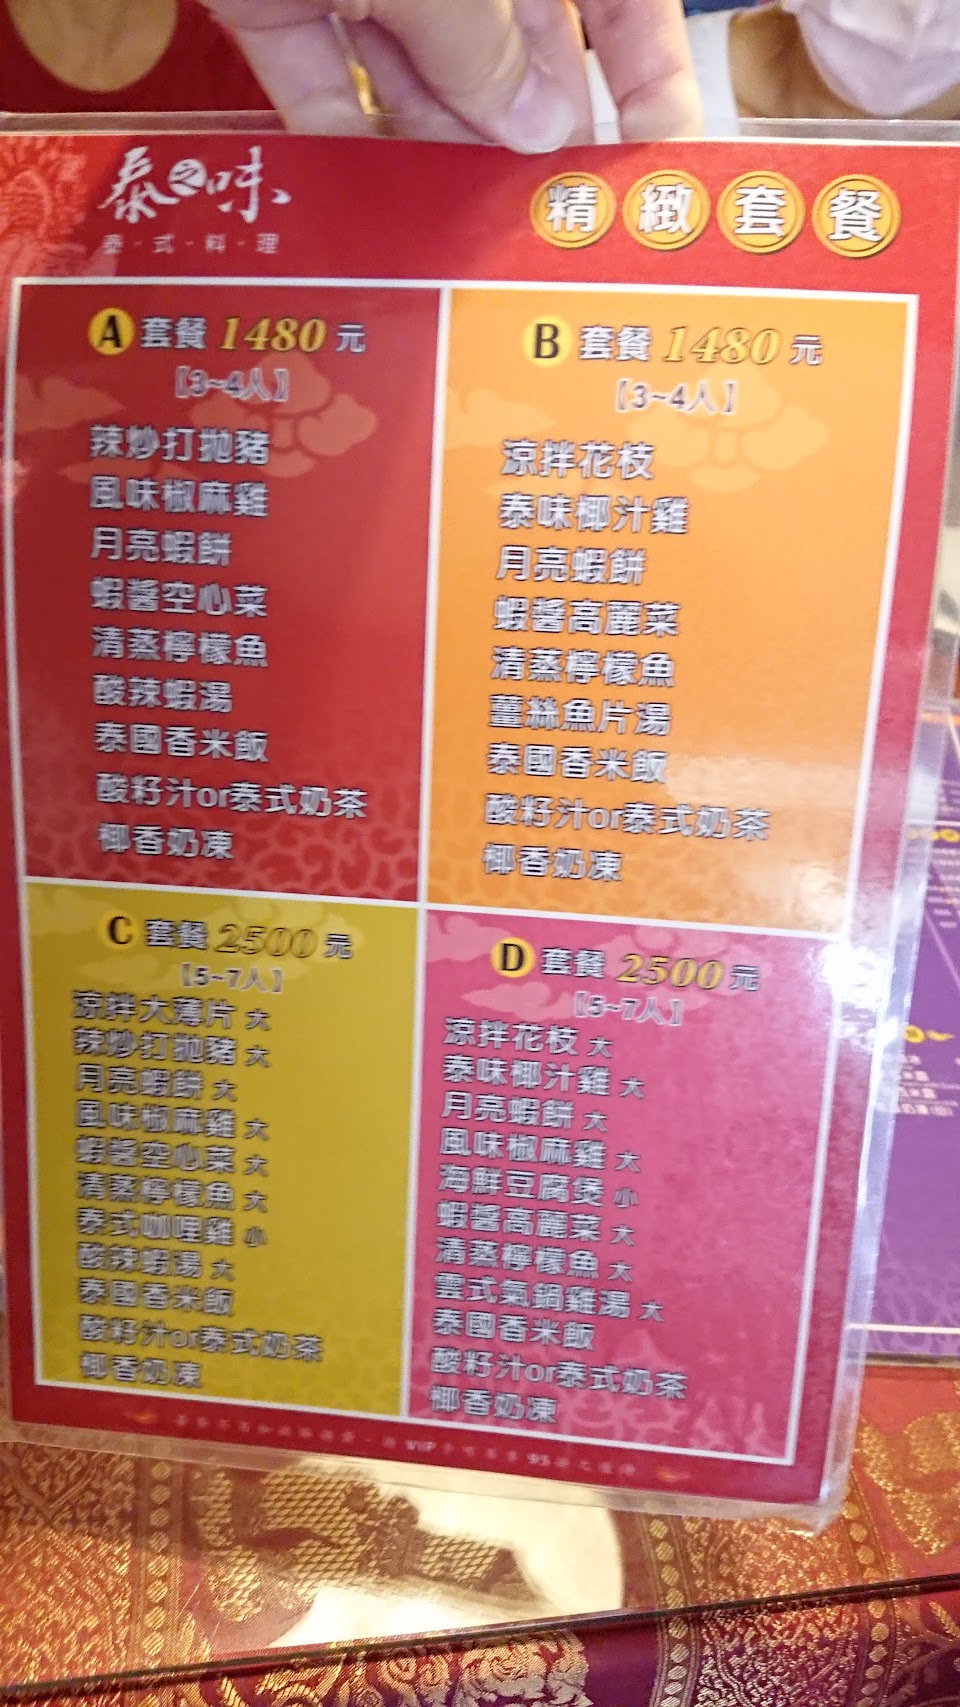 泰之味
泰·式·料·理
精緻套餐
A 套餐 1480 元
【3~4人】
辣炒打拋豬
風味椒麻雞
月亮蝦餅
蝦醬空心菜
清蒸檸檬魚
酸辣蝦湯
泰國香米飯
酸籽汁or泰式奶茶
椰香奶凍
B 套餐 1480 元
【3~4人】
涼拌花枝
泰味椰汁雞
月亮蝦餅
蝦醬高麗菜
清蒸檸檬魚
薑絲魚片湯
泰國香米飯
酸籽汁or泰式奶茶
椰香奶凍
C 套餐 2500 元
【5~7人】
涼拌大薄片 大
辣炒打拋豬 大
月亮蝦餅 大
風味椒麻雞 大
蝦醬空心菜 大
清蒸檸檬魚 大
泰式咖哩雞 小
酸辣蝦湯 大
泰國香米飯
酸籽汁or泰式奶茶
椰香奶凍
D 套餐 2500 元
【5~7人】
涼拌花枝 大
泰味椰汁雞 大
月亮蝦餅 大
風味椒麻雞 大
海鮮豆腐煲 小
蝦醬高麗菜 大
清蒸檸檬魚 大
雲式氣鍋雞湯 大
泰國香米飯
酸籽汁or泰式奶茶
椰香奶凍
VIP
95